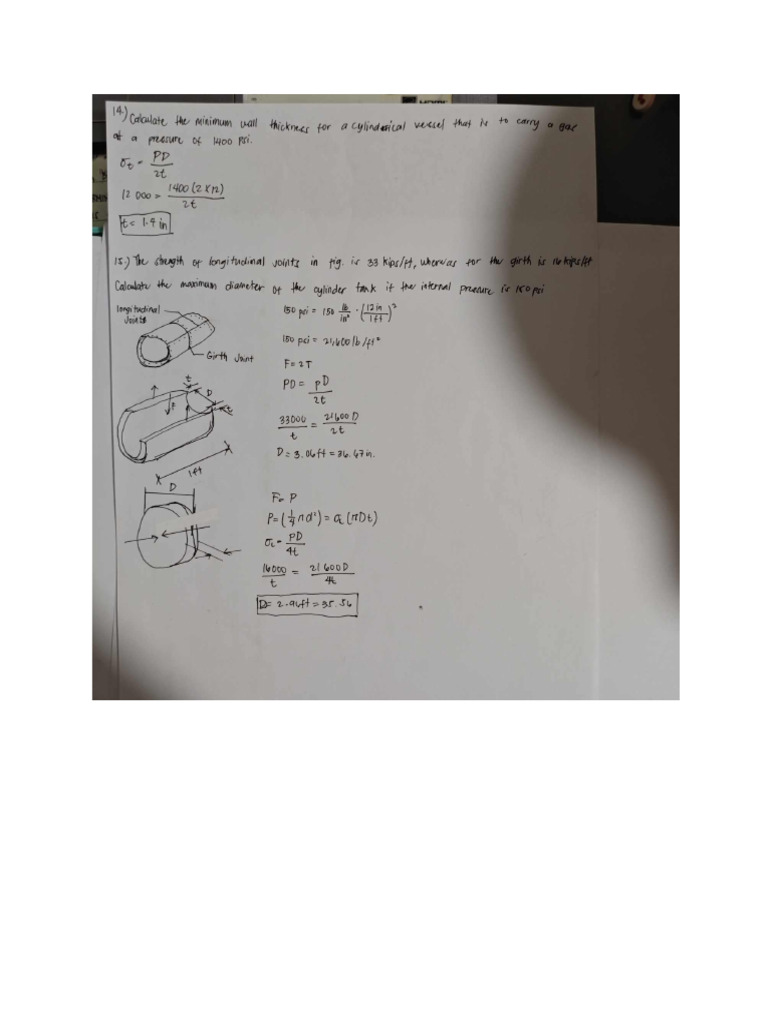 14.) Calculate the minimum wall thickness for a cylinderical vessel that is to carry a gas
at a pressure of 1400 psi.
σt = PD / 2t
12 000 = 1400 (2 x 12) / 2t
t = 1.4 in
15.) The strength of longitudinal joints in fig. is 33 kips/ft, whereas for the girth is 16 kips/ft
Calculate the maximum diameter of the cylinder tank if the internal pressure is 150 psi
longitudinal
Joints
Girth Joint
150 psi = 150 lb/in² · (12 in / 1 ft)²
150 psi = 21,600 lb/ft²
F = 2T
PD = pD / 2t
33000 / t = 21600 D / 2t
D = 3.06 ft = 36.67 in.
t
D
t
F
1 ft
D
For P
P = (1/4 πd²) = σL (πDt)
σL = PD / 4t
16000 / t = 21 600 D / 4t
D = 2.96 ft = 35.56